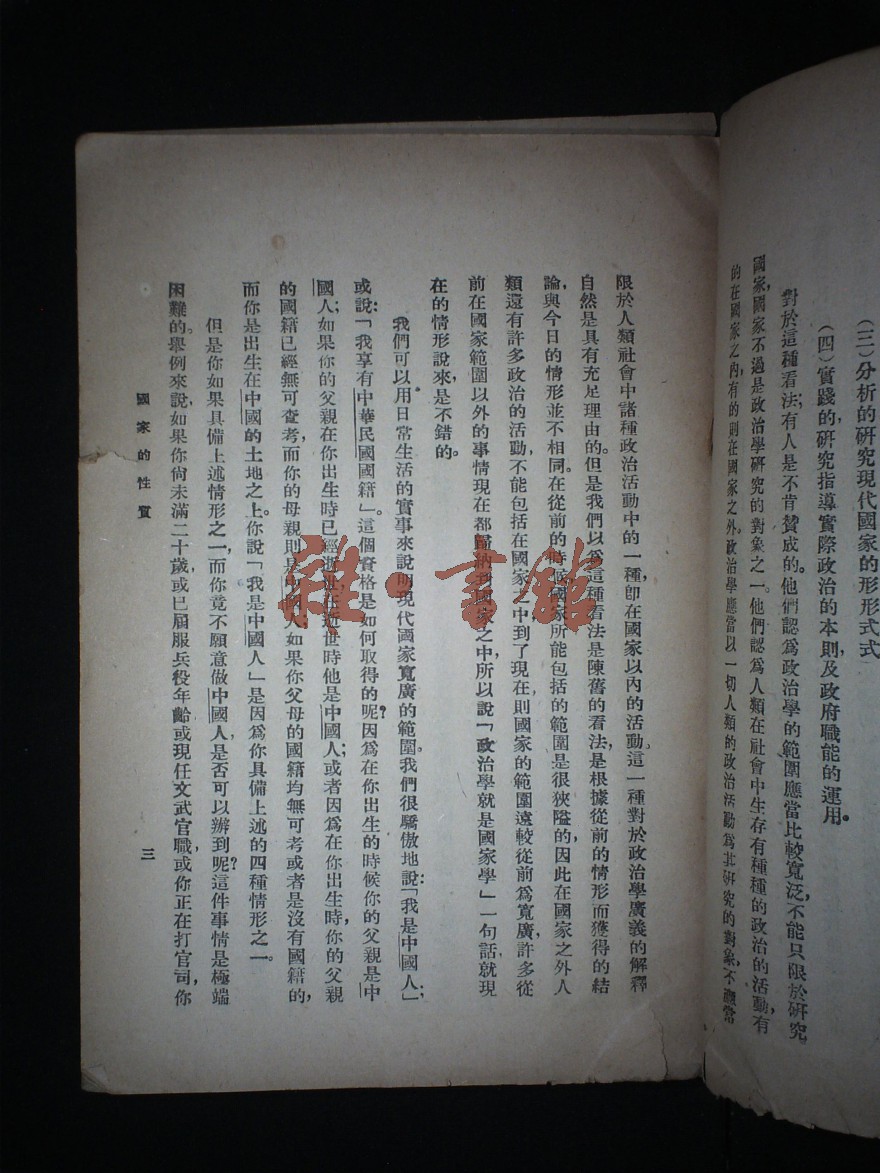 （三）分析的研究現代國家的形形式式
（四）實踐的研究指導實際政治的本則及政府職能的運用。
對於這種看法，有人是不肯贊成的。他們認爲政治學的範圍應當比較寬泛，不能只限於研究
國家，國家不過是政治學研究的對象之一。他們認爲人類在社會中生存有種種的政治的活動，有
的在國家之內，有的則在國家之外。政治學應當以一切人類的政治活動爲其研究的對象，不應當
限於人類社會中諸種政治活動中的一種，卽在國家以內的活動。這一種對於政治學廣義的解釋
自然是具有充足理由的。但是我們以爲這種看法是陳舊的看法，是根據從前的情形而獲得的結
論，與今日的情形並不相同。在從前的時候，國家所能包括的範圍是很狹隘的，因此在國家之外人
類還有許多政治的活動，不能包括在國家之中。到了現在，則國家的範圍遠較從前爲寬廣，許多從
前在國家範圍以外的事情現在都歸納到國家之中，所以說「政治學就是國家學」一句話，就現
在的情形說來，是不錯的。
我們可以用日常生活的實事來說明現代國家寬廣的範圍。我們很驕傲地說：「我是中國人」；
或說：「我享有中華民國國籍」。這個資格是如何取得的呢？因爲在你出生的時候你的父親是中
國人；如果你的父親在你出生時已經逝世，在逝世時他是中國人；或者因爲在你出生時，你的父親
的國籍已經無可查考，而你的母親則是中國人；如果你父母的國籍均無可考或者是沒有國籍的，
而你是出生在中國的土地之上。你說「我是中國人」是因爲你具備上述的四種情形之一。
但是你如果具備上述情形之一，而你竟不願意做中國人，是否可以辦到呢？這件事情是極端
困難的。舉例來說，如果你尙未滿二十歲或已屆服兵役年齡或現任文武官職，或你正在打官司，你
國家的性質
三
雜·書館